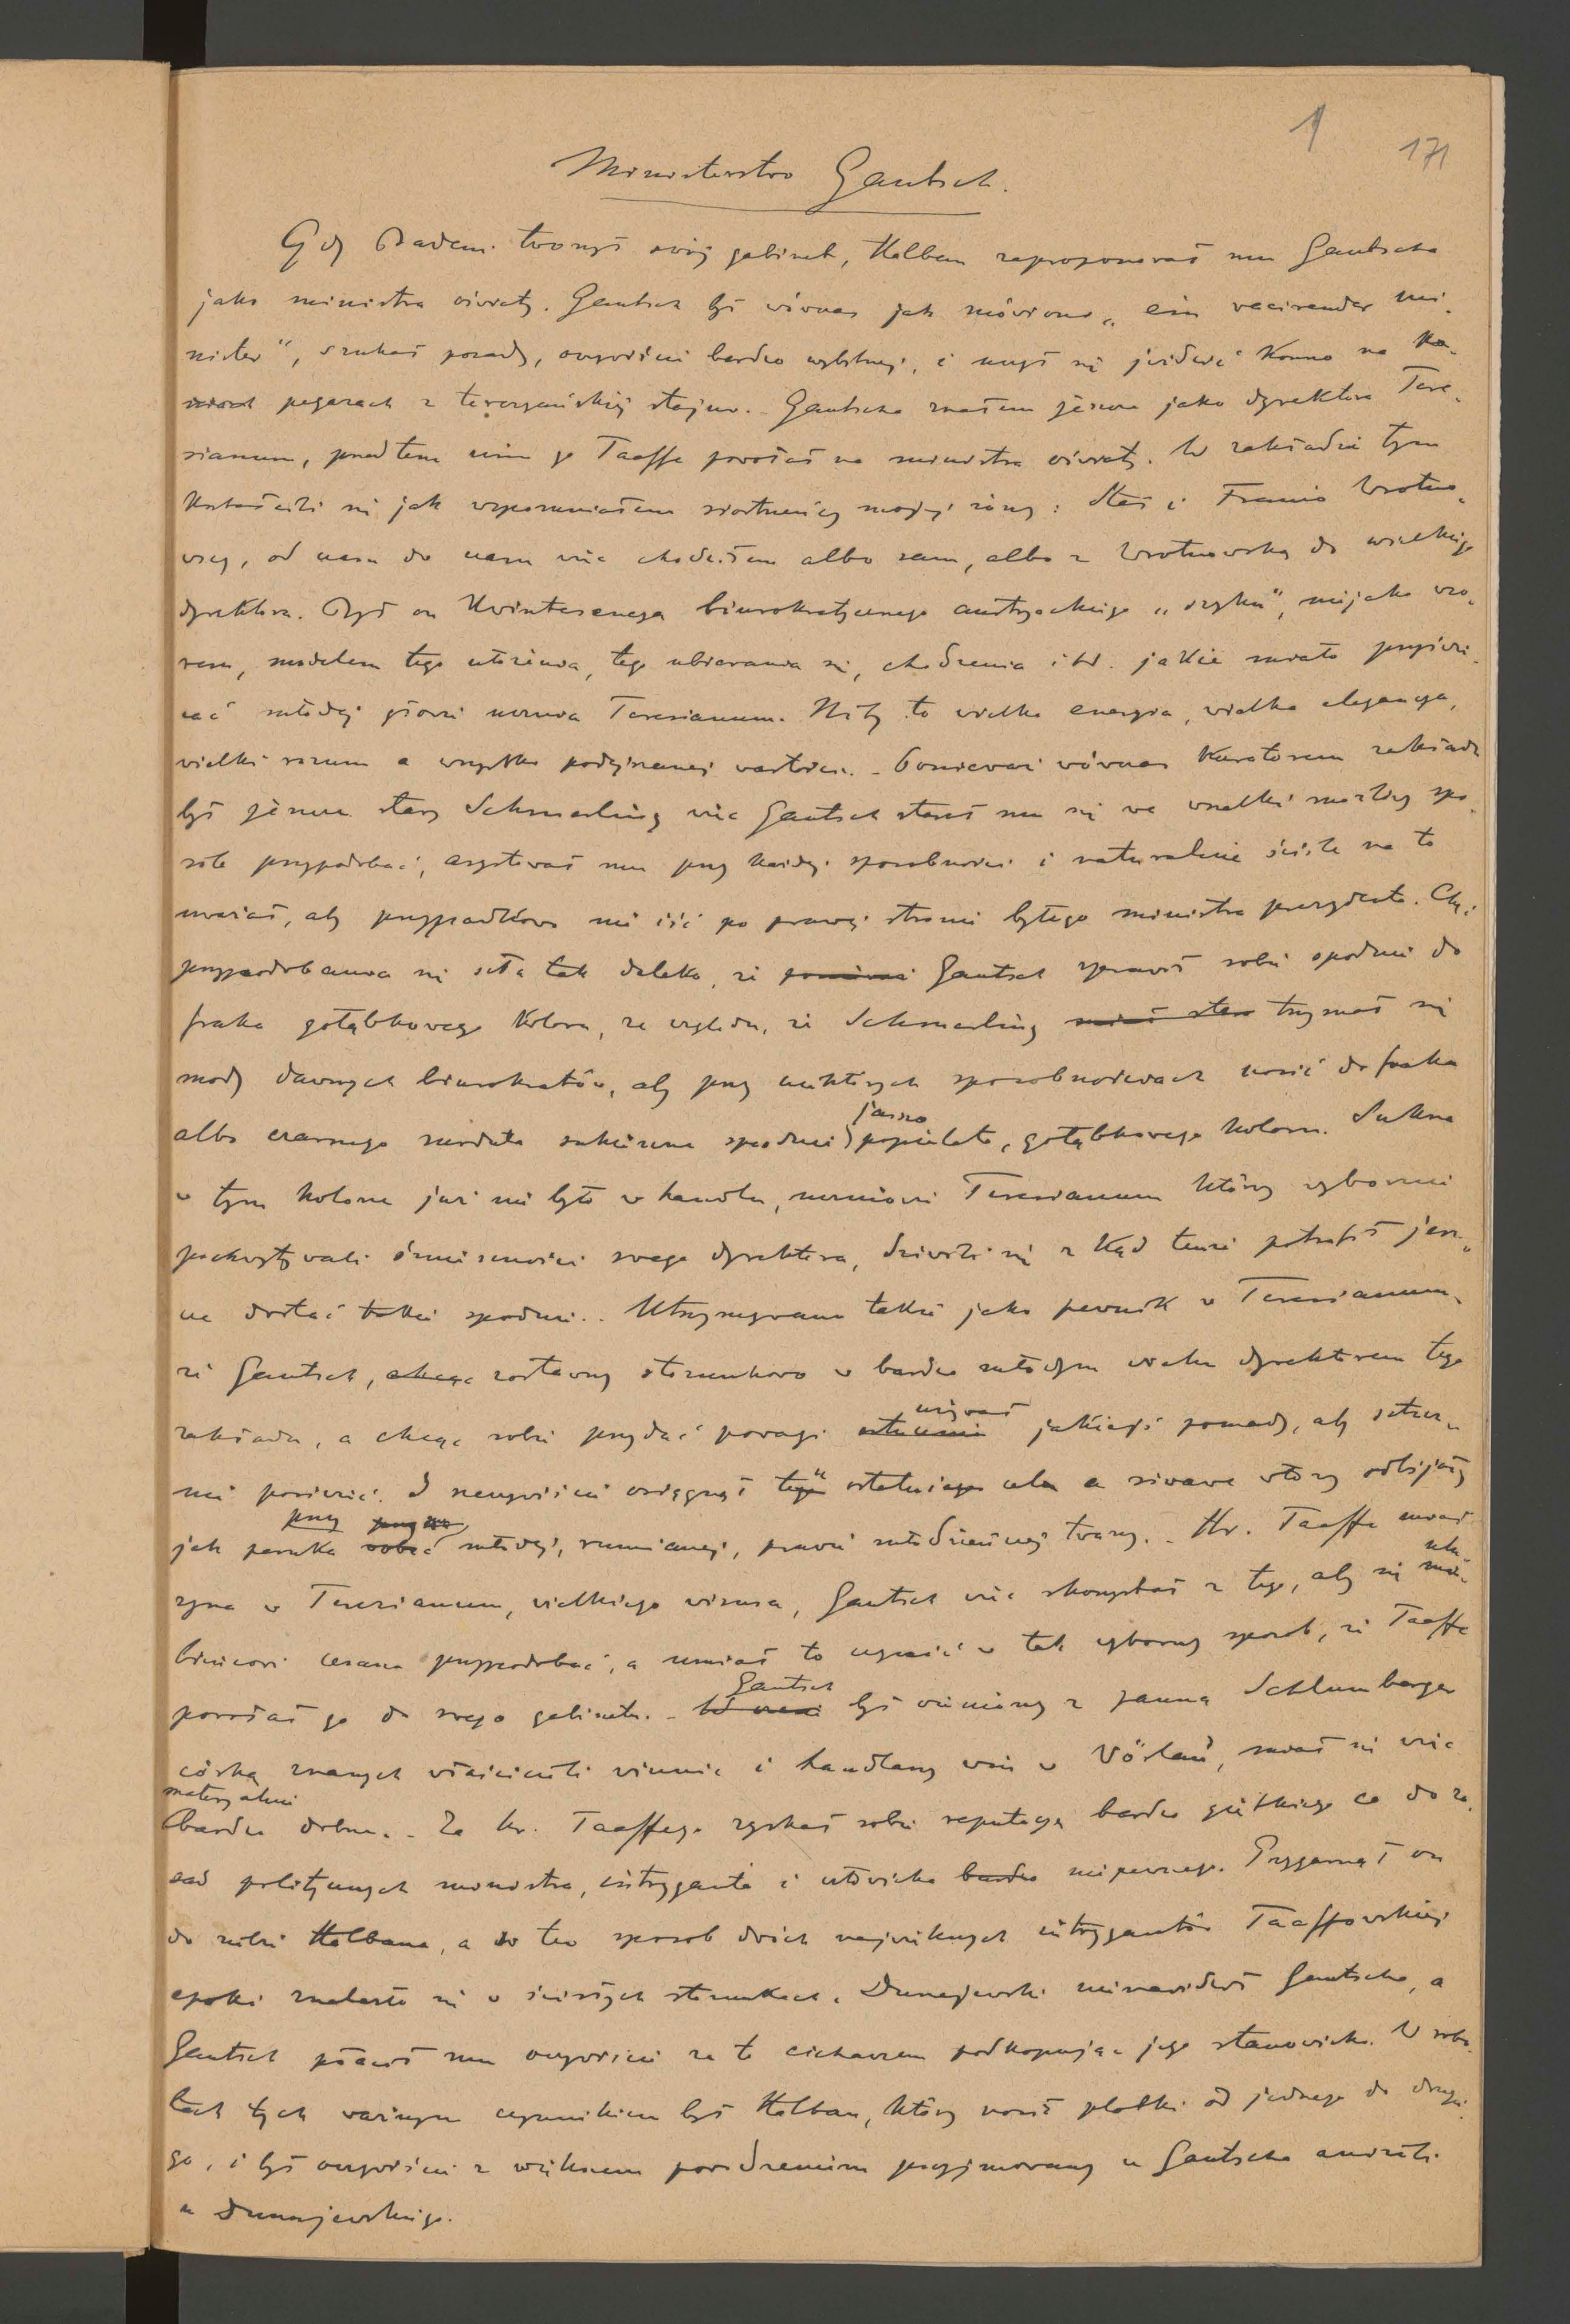 1
171
Ministerstwo Gautsch.
Gdy Badeni tworzył swój gabinet, Halban zaproponował mu Gautscha
jako ministra oświaty. Gautsch był wówczas jak mówiono „ein vacirender Mi-
nister", szukał posady, oczywiście bardzo wybitnej, i
pegazach z stajni. - Gautscha znałem jeszcze jako dyrektora There-
sianum, przedtem nim go Taaffe powołał na ministra oświaty. W zakładzie tym
kształcili się jak wspomniałem siostrzeńcy mojej żony: Staś i Franio Wrotno-
wscy, od czasu do czasu więc chodziłem albo sam, albo z Wrotnowską do wielkiego
dyrektora. Był on kwintesencyą biurokratycznego austryackiego „szyku", niejako wzo-
rem, modelem tego ułożenia, tego ubierania się, chodzenia itd. jakie miało przyświe-
cać młodej głowie ucznia Teresianum. Niby to wielka energia, wielka elegancya,
wielki rozum a wszystko podejrzanej wartości. - Ponieważ wówczas Kuratorem zakładu
był jeszcze stary Schmerling więc Gautsch starał mu się we wszelki możliwy spo-
sób przypodobać, asystował mu przy każdej sposobności i naturalnie ściśle na to
uważał, aby przypadkowo nie iść po prawej stronie byłego ministra prezydenta. Chęć
przypodobania się szła tak daleko, że Gautsch sprawił sobie spodnie do
fraka gołąbkowego koloru, ze względu, że Schmerling trzymał się
mody dawnych biurokratów, aby przy niektórych sposobnościach nosić do fraka
albo czarnego surduta sukienne spodnie jasno popielate, gołąbkowego koloru. Sukna
w tym kolorze już nie było w handlu, uczniowie Teresianum którzy wybornie
pochwytywali śmieszności swego dyrektora, dziwili się z kąd tenże potrafił jesz-
cze dostać takie spodnie. - Utrzymywano także jako pewnik w Teresianum,
że Gautsch, chcąc zostawszy stosunkowo w bardzo młodym wieku dyrektorem tego
zakładu, a chcąc sobie przydać powagi używał jakiejś pomady, aby sztucz-
nie posiwieć. I rzeczywiście osiągnął ten ostatni cel a siwawe włosy odbijały
jak peruka przy młodej, rumianej, prawie młodzieńczej twarzy. - Hr. Taaffe miał
syna w Teresianum, wielkiego wisusa, Gautsch więc skorzystał z tego, aby się ulu-
bieńcowi cesarza przypodobać, a umiał to uczynić w tak wyborny sposób, że Taaffe
powołał go do swego gabinetu. - Gautsch był ożeniony z panną Schlumberger
córką znanych właścicieli winnic i handlarzy win w Vöslau, miał się więc
materyalnie
bardzo dobrze. - Za hr. Taaffego zyskał sobie reputacyą bardzo giętkiego co do za-
sad politycznych ministra, intryganta i człowieka bardzo niepewnego. Przygarnął on
do siebie Halbana, a w ten sposób dwóch największych intrygantów Taaffowskiej
epoki znalazło się w ścisłych stosunkach. Dunajewski nienawidził Gautscha, a
Gautsch płacił mu oczywiście za to cichaczem podkopując jego stanowisko. W robo-
tach tych ważnym czynnikiem był Halban, który nosił plotki od jednego do drugie-
go, i był oczywiście z większem powodzeniem przyjmowany u Gautscha aniżeli
u Dunajewskiego.